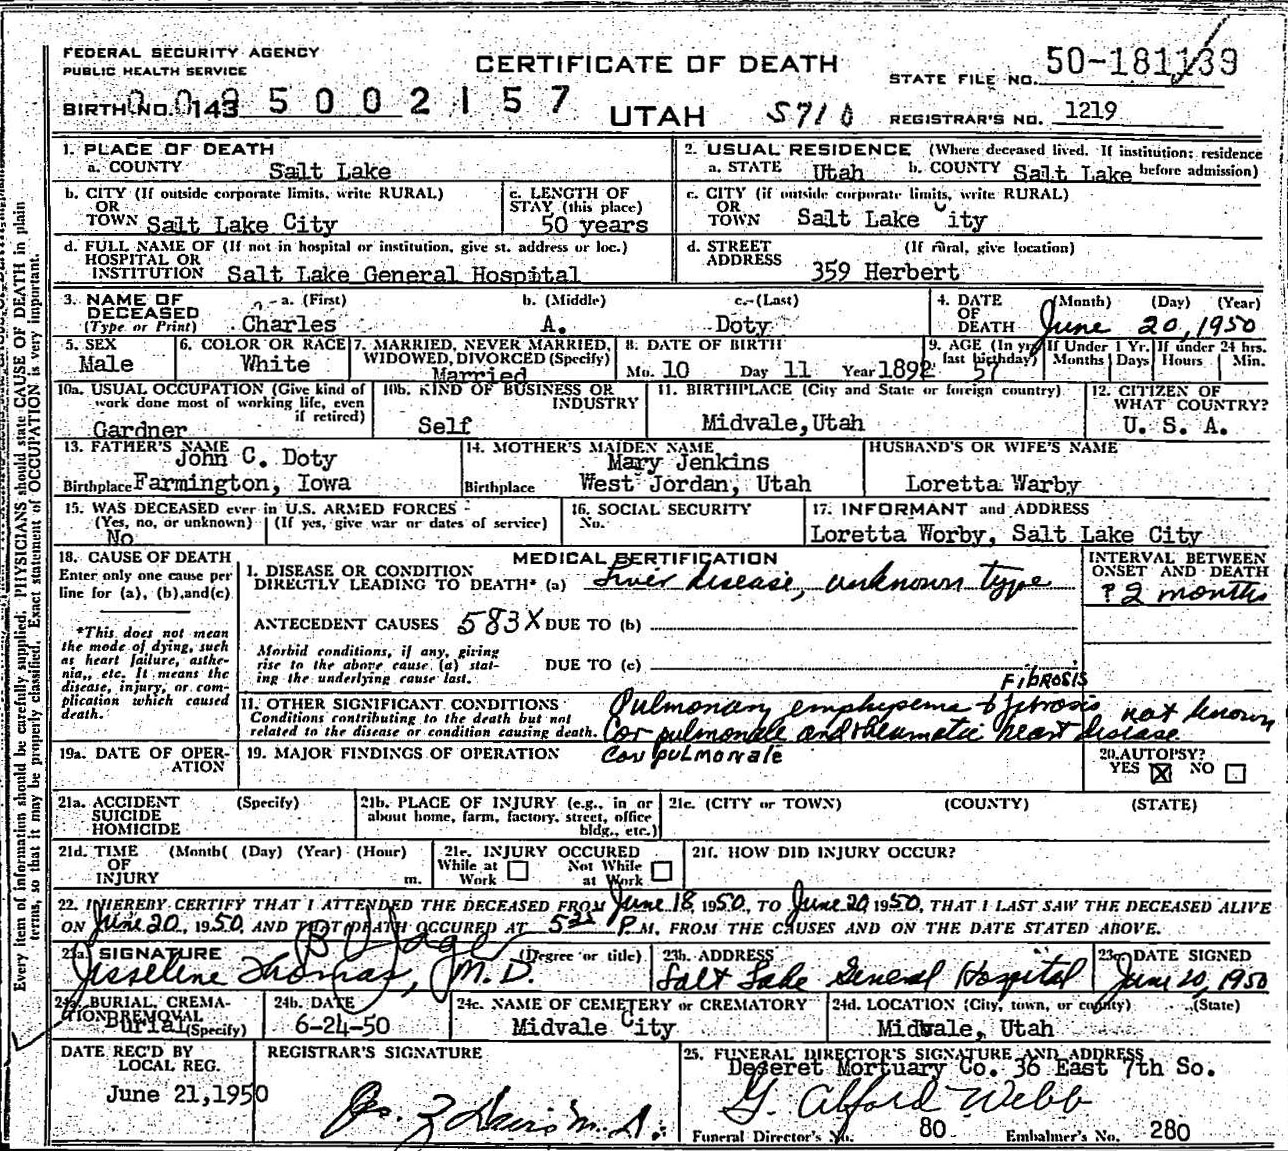 FEDERAL SECURITY AGENCY
PUBLIC HEALTH SERVICE
CERTIFICATE OF DEATH
STATE FILE NO. 50-181139
BIRTH NO. 143 5002157
UTAH 5710
REGISTRAR'S NO. 1219
1. PLACE OF DEATH
a. COUNTY Salt Lake
b. CITY (If outside corporate limits, write RURAL)
OR
TOWN Salt Lake City
c. LENGTH OF
STAY (this place)
50 years
d. FULL NAME OF (If not in hospital or institution, give st. address or loc.)
HOSPITAL OR
INSTITUTION Salt Lake General Hospital
2. USUAL RESIDENCE (Where deceased lived. If institution: residence
a. STATE Utah b. COUNTY Salt Lake before admission)
c. CITY (if outside corporate limits, write RURAL)
OR
TOWN Salt Lake City
d. STREET (If rural, give location)
ADDRESS 359 Herbert
3. NAME OF
DECEASED
(Type or Print)
a. (First) b. (Middle) c. (Last)
Charles A. Doty
4. DATE
OF
DEATH
(Month) (Day) (Year)
June 20, 1950
5. SEX
Male
6. COLOR OR RACE
White
7. MARRIED, NEVER MARRIED,
WIDOWED, DIVORCED (Specify)
Married
8. DATE OF BIRTH
Mo. 10 Day 11 Year 1892
9. AGE (In yrs
last birthday)
57
If Under 1 Yr.
Months Days
If under 24 hrs.
Hours Min.
10a. USUAL OCCUPATION (Give kind of
work done most of working life, even
if retired)
Gardner
10b. KIND OF BUSINESS OR
INDUSTRY
Self
11. BIRTHPLACE (City and State or foreign country)
Midvale, Utah
12. CITIZEN OF
WHAT COUNTRY?
U. S. A.
13. FATHER'S NAME
John C. Doty
Birthplace Farmington, Iowa
14. MOTHER'S MAIDEN NAME
Mary Jenkins
Birthplace West Jordan, Utah
HUSBAND'S OR WIFE'S NAME
Loretta Warby
15. WAS DECEASED ever in U.S. ARMED FORCES
(Yes, no, or unknown) (If yes, give war or dates of service)
No
16. SOCIAL SECURITY
No.
17. INFORMANT and ADDRESS
Loretta Worby, Salt Lake City
18. CAUSE OF DEATH
Enter only one cause per
line for (a), (b), and (c)
*This does not mean
the mode of dying, such
as heart failure, asthe-
nia, etc. It means the
disease, injury, or com-
plication which caused
death.
MEDICAL CERTIFICATION
1. DISEASE OR CONDITION
DIRECTLY LEADING TO DEATH* (a) Liver disease, unknown type
ANTECEDENT CAUSES 583X DUE TO (b)
Morbid conditions, if any, giving
rise to the above cause (a) stat-
ing the underlying cause last.
DUE TO (c)
FIBROSIS
11. OTHER SIGNIFICANT CONDITIONS
Conditions contributing to the death but not
related to the disease or condition causing death.
Pulmonary emphysema & fibrosis
Cor pulmonale and rheumatic heart disease
INTERVAL BETWEEN
ONSET AND DEATH
? 2 months
not known
19a. DATE OF OPER-
ATION
19. MAJOR FINDINGS OF OPERATION
Cor pulmonale
20. AUTOPSY?
YES X NO
21a. ACCIDENT (Specify)
SUICIDE
HOMICIDE
21b. PLACE OF INJURY (e.g., in or
about home, farm, factory, street, office
bldg., etc.)
21c. (CITY or TOWN) (COUNTY) (STATE)
21d. TIME (Month( (Day) (Year) (Hour)
OF
INJURY m.
21e. INJURY OCCURED
While at Work
Not While at Work
21f. HOW DID INJURY OCCUR?
22. I HEREBY CERTIFY THAT I ATTENDED THE DECEASED FROM June 18, 1950, TO June 20, 1950, THAT I LAST SAW THE DECEASED ALIVE
ON June 20, 1950, AND THAT DEATH OCCURED AT 5 25 P.M. FROM THE CAUSES AND ON THE DATE STATED ABOVE.
23a. SIGNATURE (Degree or title)
Thomas, M.D.
23b. ADDRESS
Salt Lake General Hospital
23c. DATE SIGNED
June 20, 1950
24a. BURIAL, CREMA-
TION REMOVAL
Burial (Specify)
24b. DATE
6-24-50
24c. NAME OF CEMETERY or CREMATORY
Midvale City
24d. LOCATION (City, town, or county) (State)
Midvale, Utah
DATE REC'D BY
LOCAL REG.
June 21, 1950
REGISTRAR'S SIGNATURE
M. D.
25. FUNERAL DIRECTOR'S SIGNATURE AND ADDRESS
Deseret Mortuary Co. 36 East 7th So.
G. Alford Webb
Funeral Director's No. 80 Embalmer's No. 280
Every item of information should be carefully supplied. PHYSICIANS should state CAUSE OF DEATH in plain
terms, so that it may be properly classified. Exact statement of OCCUPATION is very important.